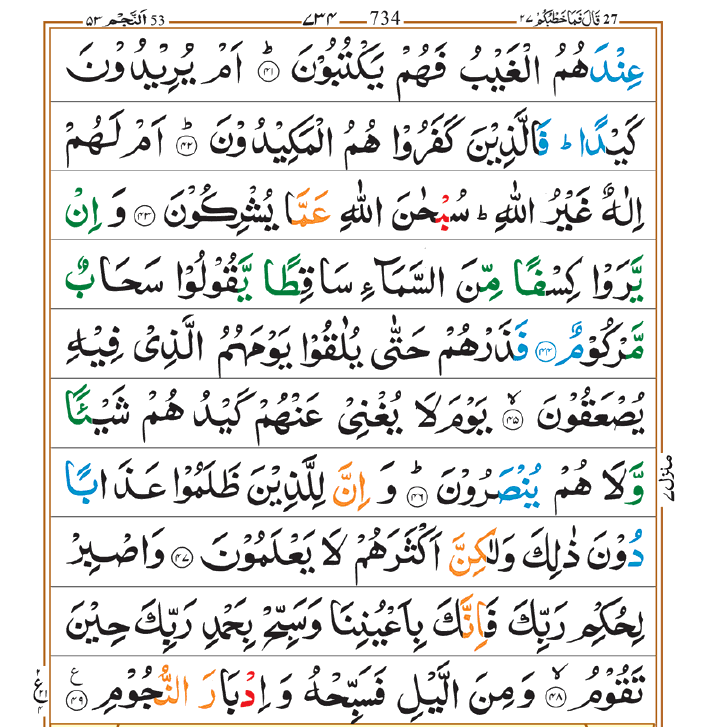 27 قَالَ فَمَا خَطْبُكُمْ ۲۷ 734 ۷۳۴ 53 اَلنَّجْم ۵۳
عِنْدَهُمُ الْغَيْبُ فَهُمْ يَكْتُبُوْنَ ؕ ۴۱ اَمْ يُرِيْدُوْنَ
كَيْدًا ؕ فَالَّذِيْنَ كَفَرُوْا هُمُ الْمَكِيْدُوْنَ ؕ ۴۲ اَمْ لَهُمْ
اِلٰهٌ غَيْرُ اللّٰهِ ؕ سُبْحٰنَ اللّٰهِ عَمَّا يُشْرِكُوْنَ ۴۳ وَ اِنْ
يَّرَوْا كِسْفًا مِّنَ السَّمَآءِ سَاقِطًا يَّقُوْلُوْا سَحَابٌ
مَّرْكُوْمٌ ۴۴ فَذَرْهُمْ حَتّٰى يُلٰقُوْا يَوْمَهُمُ الَّذِىْ فِيْهِ
يُصْعَقُوْنَ ۙ ۴۵ يَوْمَ لَا يُغْنِىْ عَنْهُمْ كَيْدُ هُمْ شَيْـًٔا
وَّلَا هُمْ يُنْصَرُوْنَ ؕ ۴۶ وَ اِنَّ لِلَّذِيْنَ ظَلَمُوْا عَذَابًا
دُوْنَ ذٰلِكَ وَلٰكِنَّ اَكْثَرَهُمْ لَا يَعْلَمُوْنَ ۴۷ وَاصْبِرْ
لِحُكْمِ رَبِّكَ فَاِنَّكَ بِاَعْيُنِنَا وَسَبِّحْ بِحَمْدِ رَبِّكَ حِيْنَ
تَقُوْمُ ۙ ۴۸ وَمِنَ الَّيْلِ فَسَبِّحْهُ وَ اِدْبَارَ النُّجُوْمِ ۴۹ ع
منزل ۷
۲ ع ۲۱ ۴